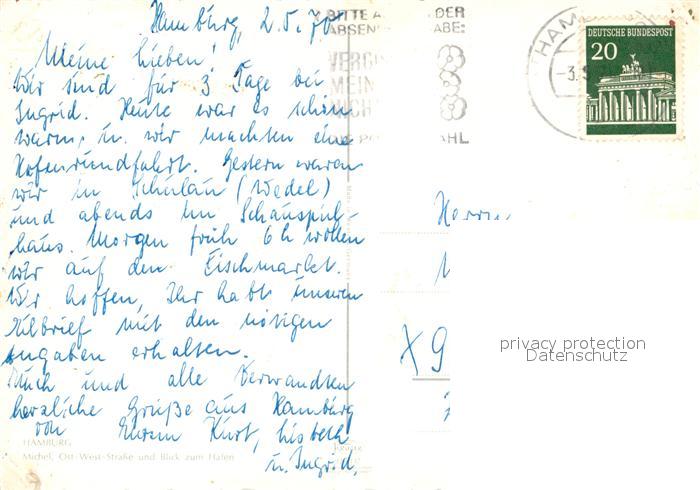 Hamburg, 2.5.70
Meine Lieben!
Wir sind für 3 Tage bei
Ingrid. Heute war es schön
warm, u. wir machten eine
Hafenrundfahrt. Gestern waren
wir in Schulau (Wedel)
und abends im Schauspiel-
haus. Morgen früh 6 h wollen
wir auf den Fischmarkt.
Wir hoffen, Ihr habt unseren
Eilbrief mit den nötigen
Angaben erhalten.
Euch und alle Verwandten
herzliche Grüße aus Hamburg
von Eurem Kurt, Lisbeth
u. Ingrid.
HAMBURG
Michel, Ost-West-Straße und Blick zum Hafen
BITTE DER
ABSEN ABE:
VERGI
MEIN
NICHT
AHL
HAM
-3.
DEUTSCHE BUNDESPOST
20
Herrn
X 9
privacy protection
Datenschutz